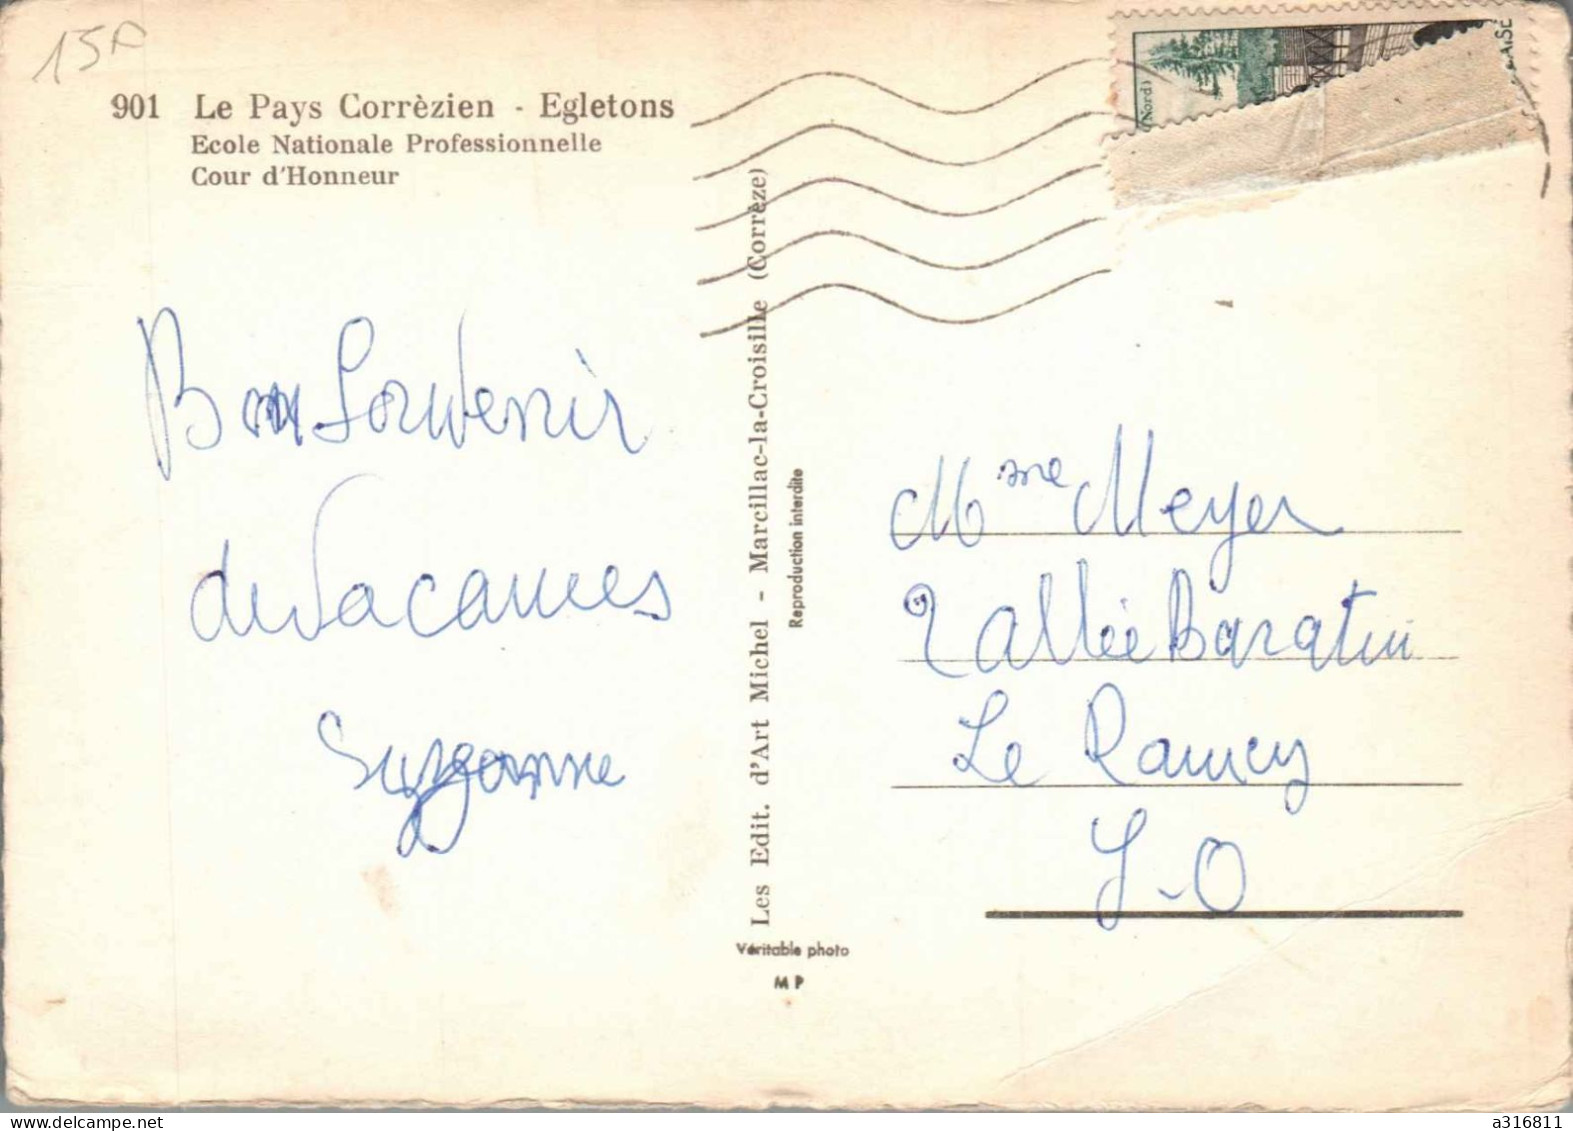 15A
901 Le Pays Corrèzien - Egletons
Ecole Nationale Professionnelle
Cour d'Honneur
(Nord)
AISE
Bon Souvenir
de Vacances
Suzanne
Les Edit. d'Art Michel - Marcillac-la-Croisille (Corrèze)
Reproduction interdite
Véritable photo
MP
Mme Meyer
2 allée Baratin
Le Raincy
S-O
a316811